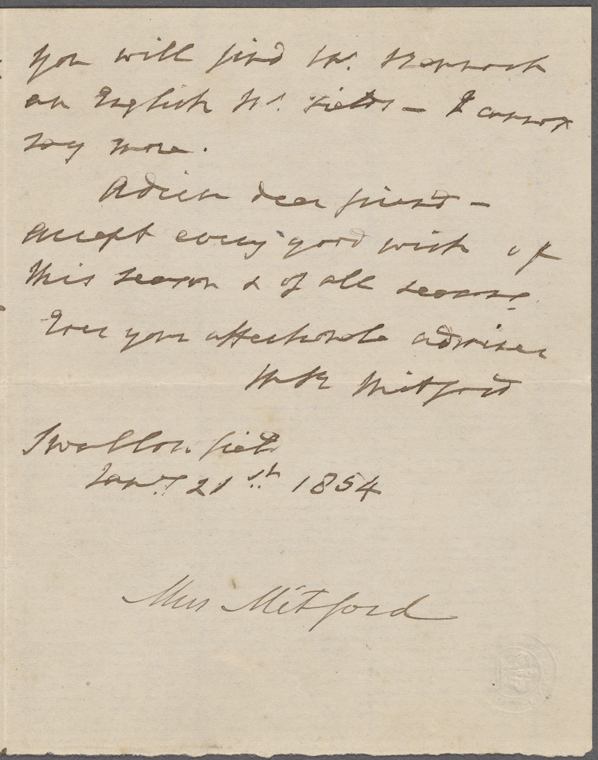 you will find Mr. Bennoch
an English Mr. Fields — I cannot
say more.
Adieu dear friend —
Accept every good wish of
this season & of all seasons.
Ever your affectionate admirer
M R Mitford
Swallowfield
Jany 21st 1854
Miss Mitford